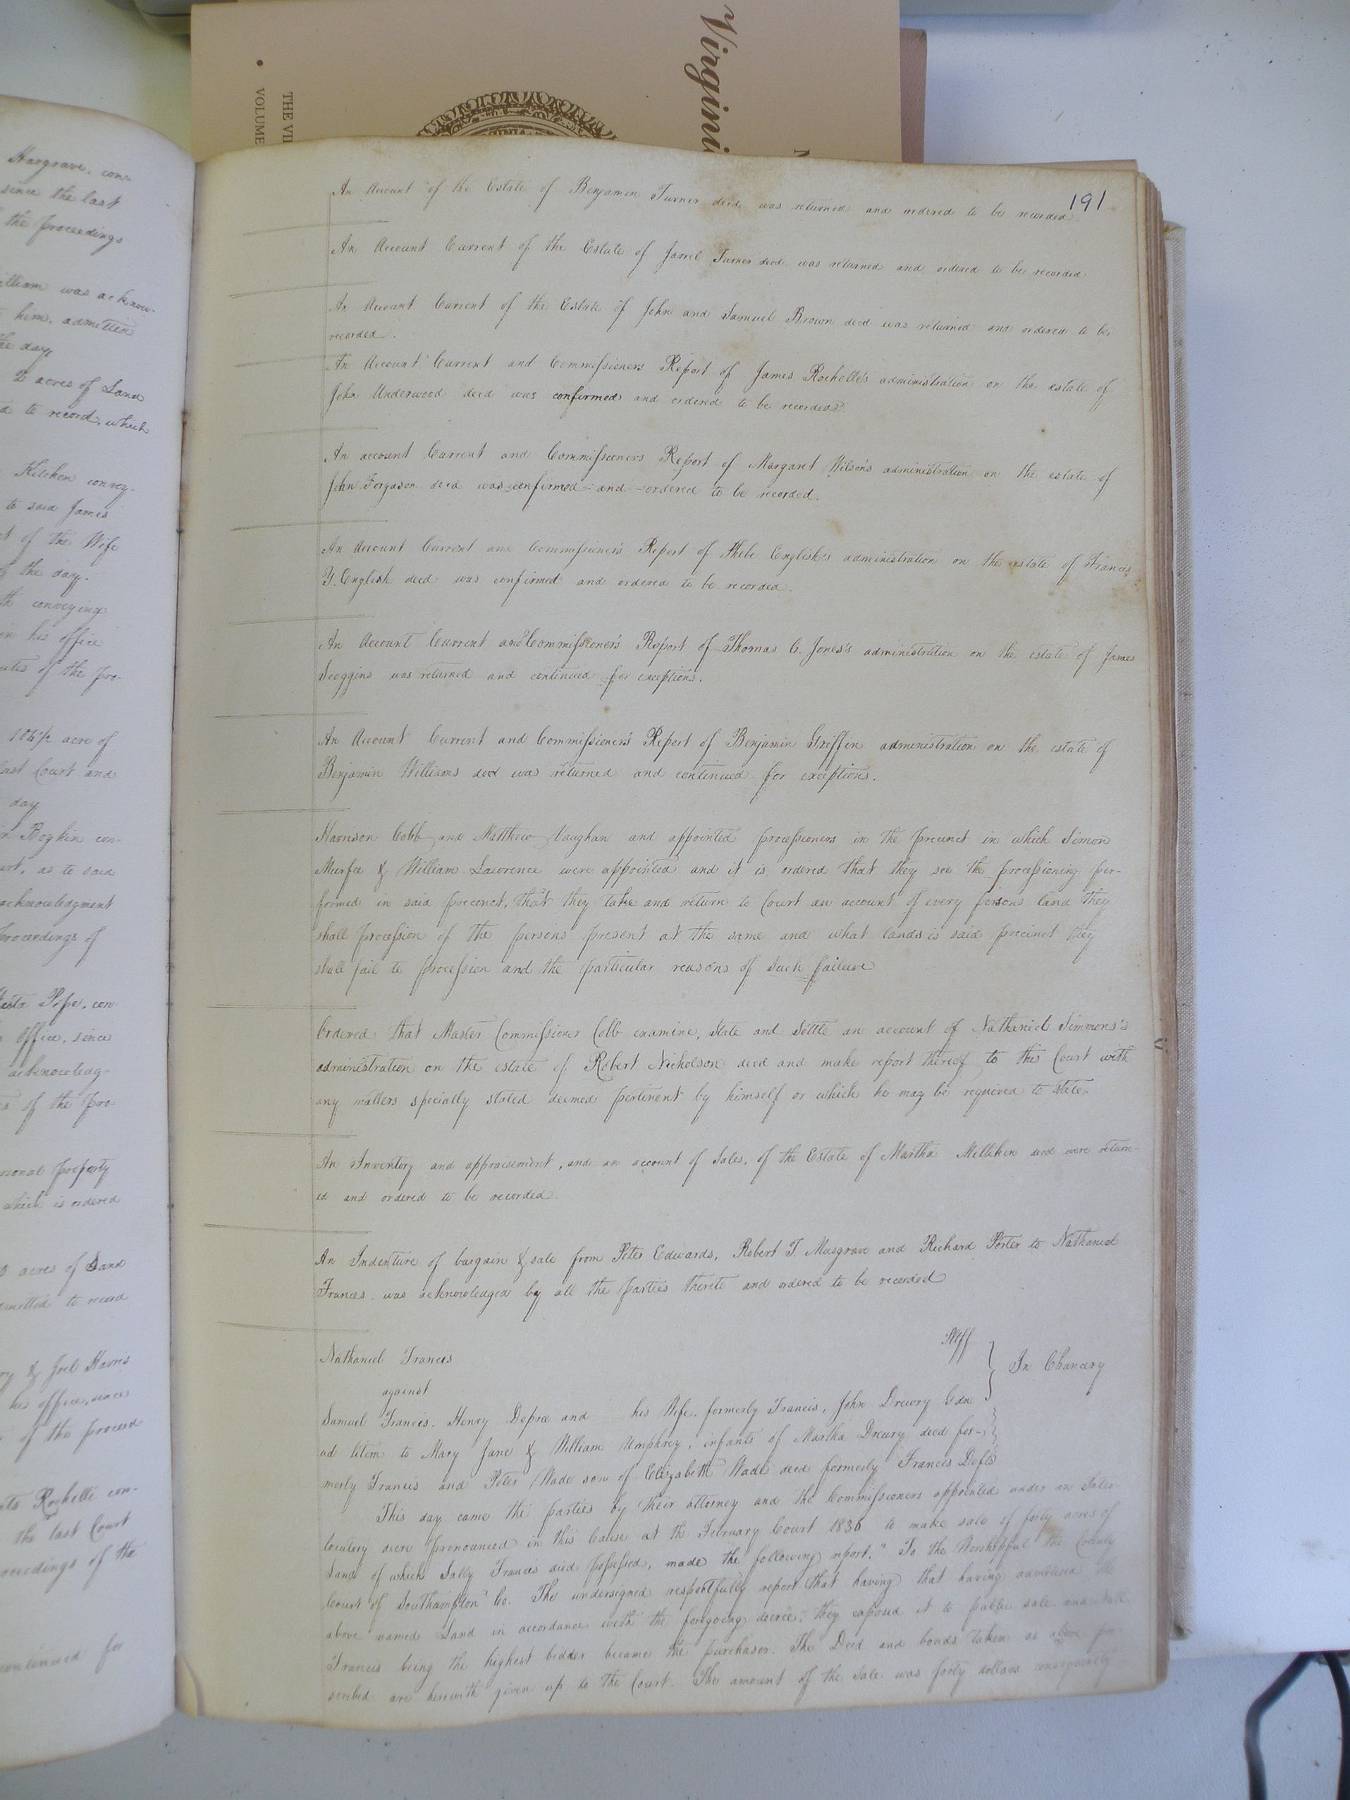 Virgini
THE VI
VOLUME
191
Hargrave, con-
since the last
the proceedings
him, admitted
the day
2 acres of Land
to record, which
Kitchen convey-
to said James
of the Wife
the day.
conveying
in his office
of the pro-
acre of
last Court and
day
con-
as to said
acknowledgment
proceedings of
Pope, con-
Office, since
acknowledg-
of the pro-
personal property
which is ordered
acres of Land
admitted to record
& Joel Harris
his office, since
of the proceed
Rochelle con-
the last Court
proceedings of the
continued for
An Account of the Estate of Benjamin Turner decd was returned and ordered to be recorded
An Account Current of the Estate of Jarrel Turner decd was returned and ordered to be recorded
An Account Current of the Estate of John and Samuel Brown decd was returned and ordered to be
recorded.
An Account Current and Commissioners Report of James Rochelle's administration on the estate of
John Underwood decd was confirmed and ordered to be recorded.
An account Current and Commissioners Report of Margaret Wilson's administration on the estate of
John Fergason decd was confirmed and ordered to be recorded.
An Account Current and Commissioner's Report of Phebe English's administration on the estate of Francis
Y. English decd was confirmed and ordered to be recorded.
An Account Current and Commissioner's Report of Thomas C. Jones's administration on the estate of James
Scoggins was returned and continued for exceptions.
An Account Current and Commissioner's Report of Benjamin Griffin administration on the estate of
Benjamin Williams decd was returned and continued for exceptions.
Harrison Cobb and Matthew Vaughan and appointed processioners in the precinct in which Simon
Murfee & William Lawrence were appointed and it is ordered that they see the processioning per-
formed in said precinct, that they take and return to Court an account of every persons land they
shall procession of the persons present at the same and what lands is said precinct they
shall fail to procession and the particular reasons of such failure
Ordered that Master Commissioner Cobb examine, state and settle an account of Nathaniel Simmons's
administration on the estate of Robert Nicholson decd and make report thereof to this Court with
any matters specially stated deemed pertinent by himself or which he may be required to state.
An Inventory and appraisement, and an account of Sales, of the Estate of Martha Milliken decd were return-
ed and ordered to be recorded.
An Indenture of bargain & sale from Peter Edwards, Robert T. Musgrave and Richard Porter to Nathaniel
Francis was acknowledged by all the parties thereto and ordered to be recorded
Nathaniel Francis Pltff
against In Chancery
Samuel Francis. Henry Deprée and his Wife, formerly Francis, John Drewry Gdn
ad litem to Mary Jane & William Umphrey, infants of Martha Drewry decd for-
merly Francis and Peter Wade son of Elizabeth Wade decd formerly Francis Defts
This day came the parties by their attorney and the Commissioners appointed under an Inter-
locutory decree pronounced in this Cause at the February Court 1836 to make sale of forty acres of
Land of which Sally Francis died possessed, made the following report." To the Worshipful the County
Court of Southampton Co. The undersigned respectfully report that having that having advertised the
above named Land in accordance with the foregoing decree, they exposed it to public sale and Nathl.
Francis being the highest bidder became the purchaser. The Deed and bonds taken as above pre-
scribed are herewith given up to the Court. The amount of the sale was forty dollars